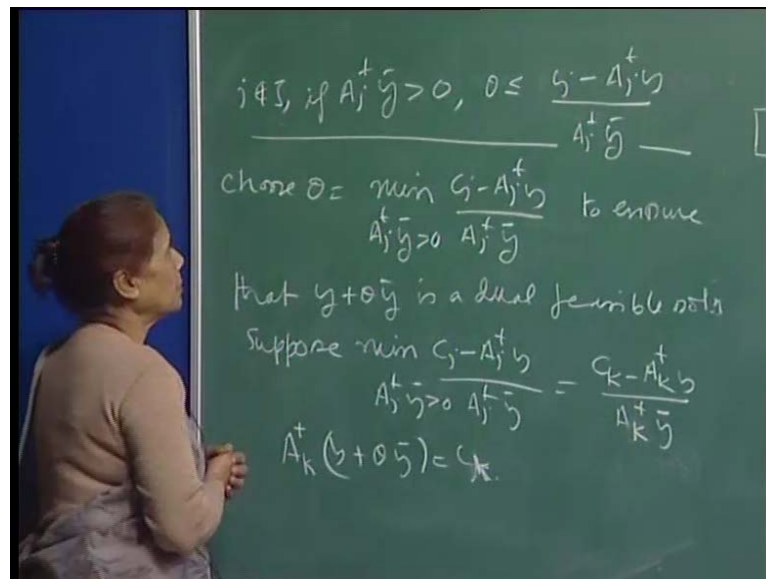 j∉J, if Aⱼᵗ ȳ > 0, θ ≤ (cⱼ - Aⱼᵗ y) / (Aⱼᵗ ȳ)
choose θ = min_{Aⱼᵗ ȳ > 0} (cⱼ - Aⱼᵗ y) / (Aⱼᵗ ȳ) to ensure
that y + θ ȳ is a dual feasible soln
Suppose min_{Aⱼᵗ ȳ > 0} (Cⱼ - Aⱼᵗ y) / (Aⱼᵗ ȳ) = (C_k - A_kᵗ y) / (A_kᵗ ȳ)
A_kᵗ (y + θ ȳ) = C_k.